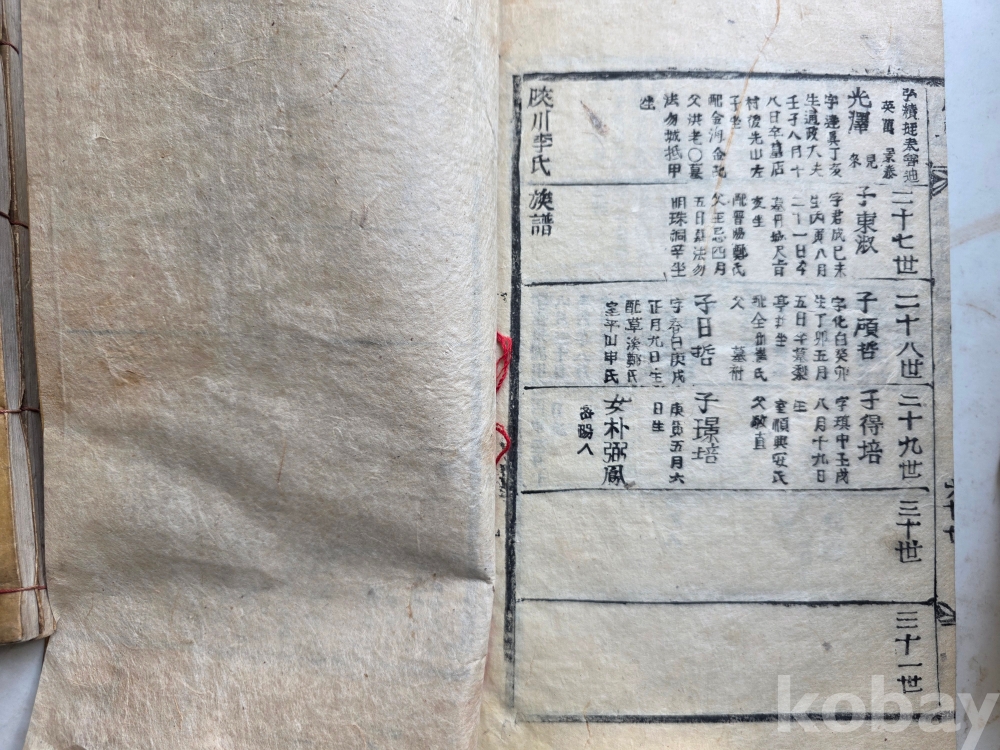 弘積廷表晉迪
英
光澤
字達真丁亥
生通政大夫
壬子八月十
八日卒墓店
村後先山左
子坐
配金海金氏
父洪老〇墓
法勿城抵甲
坐
陜川李氏
族譜
二十七世
子東淑
字君成己未
生丙寅八月
二十一日卒
亥坐
配晋陽鄭氏
父 忌四月
五日墓法勿
明珠洞辛坐
二十八世
子碩哲
字化白癸卯
生丁卯五月
五日卒墓梨
亭 坐
配全州崔氏
父 墓祔
子日哲
字春 庚戌
正月九日生
配草溪鄭氏
室平山申氏
二十九世
子得培
字 中壬戌
八月十九日
生
室順興安氏
父敬直
子璟培
庚寅五月六
日生
女朴弼鳳
密陽人
三十世
三十一世
kobay